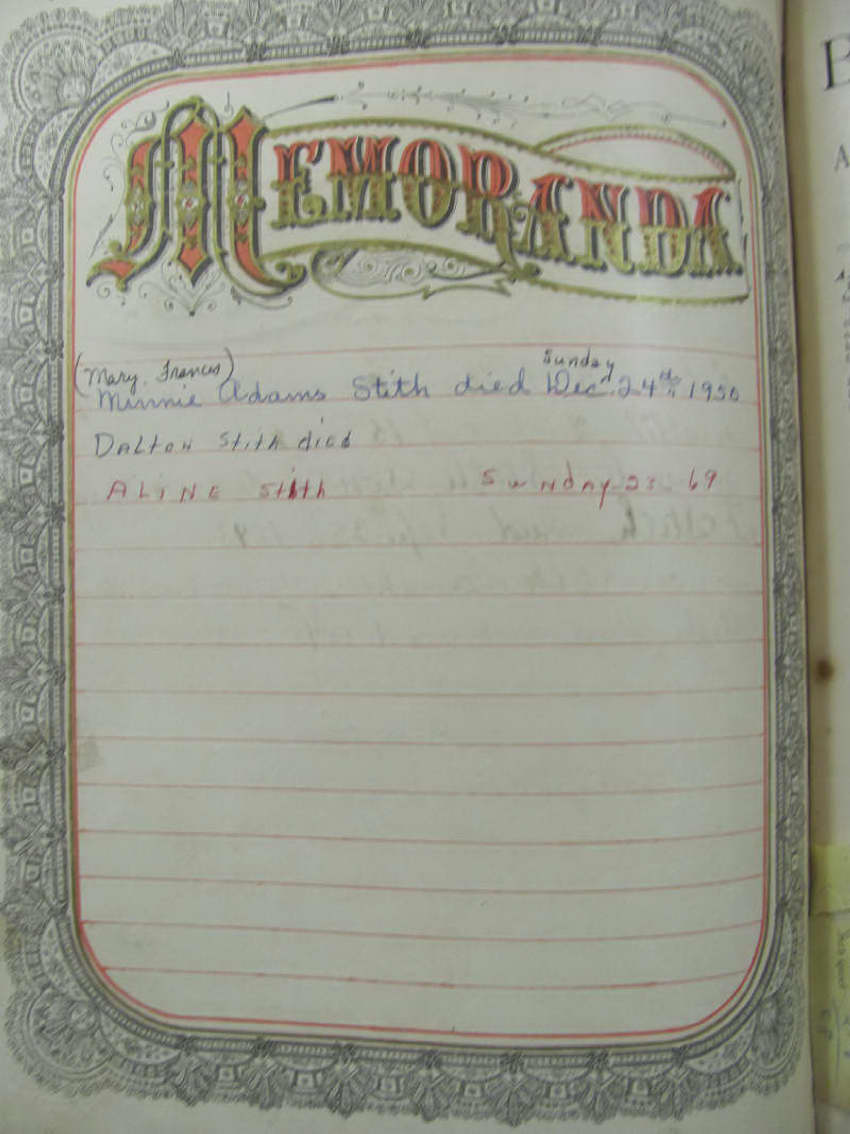 MEMORANDA
(Mary Frances) Sunday
Minnie Adams Stith died Dec. 24th 1950
Dalton Stith died
ALINE Stith Sunday 23 69
B
A